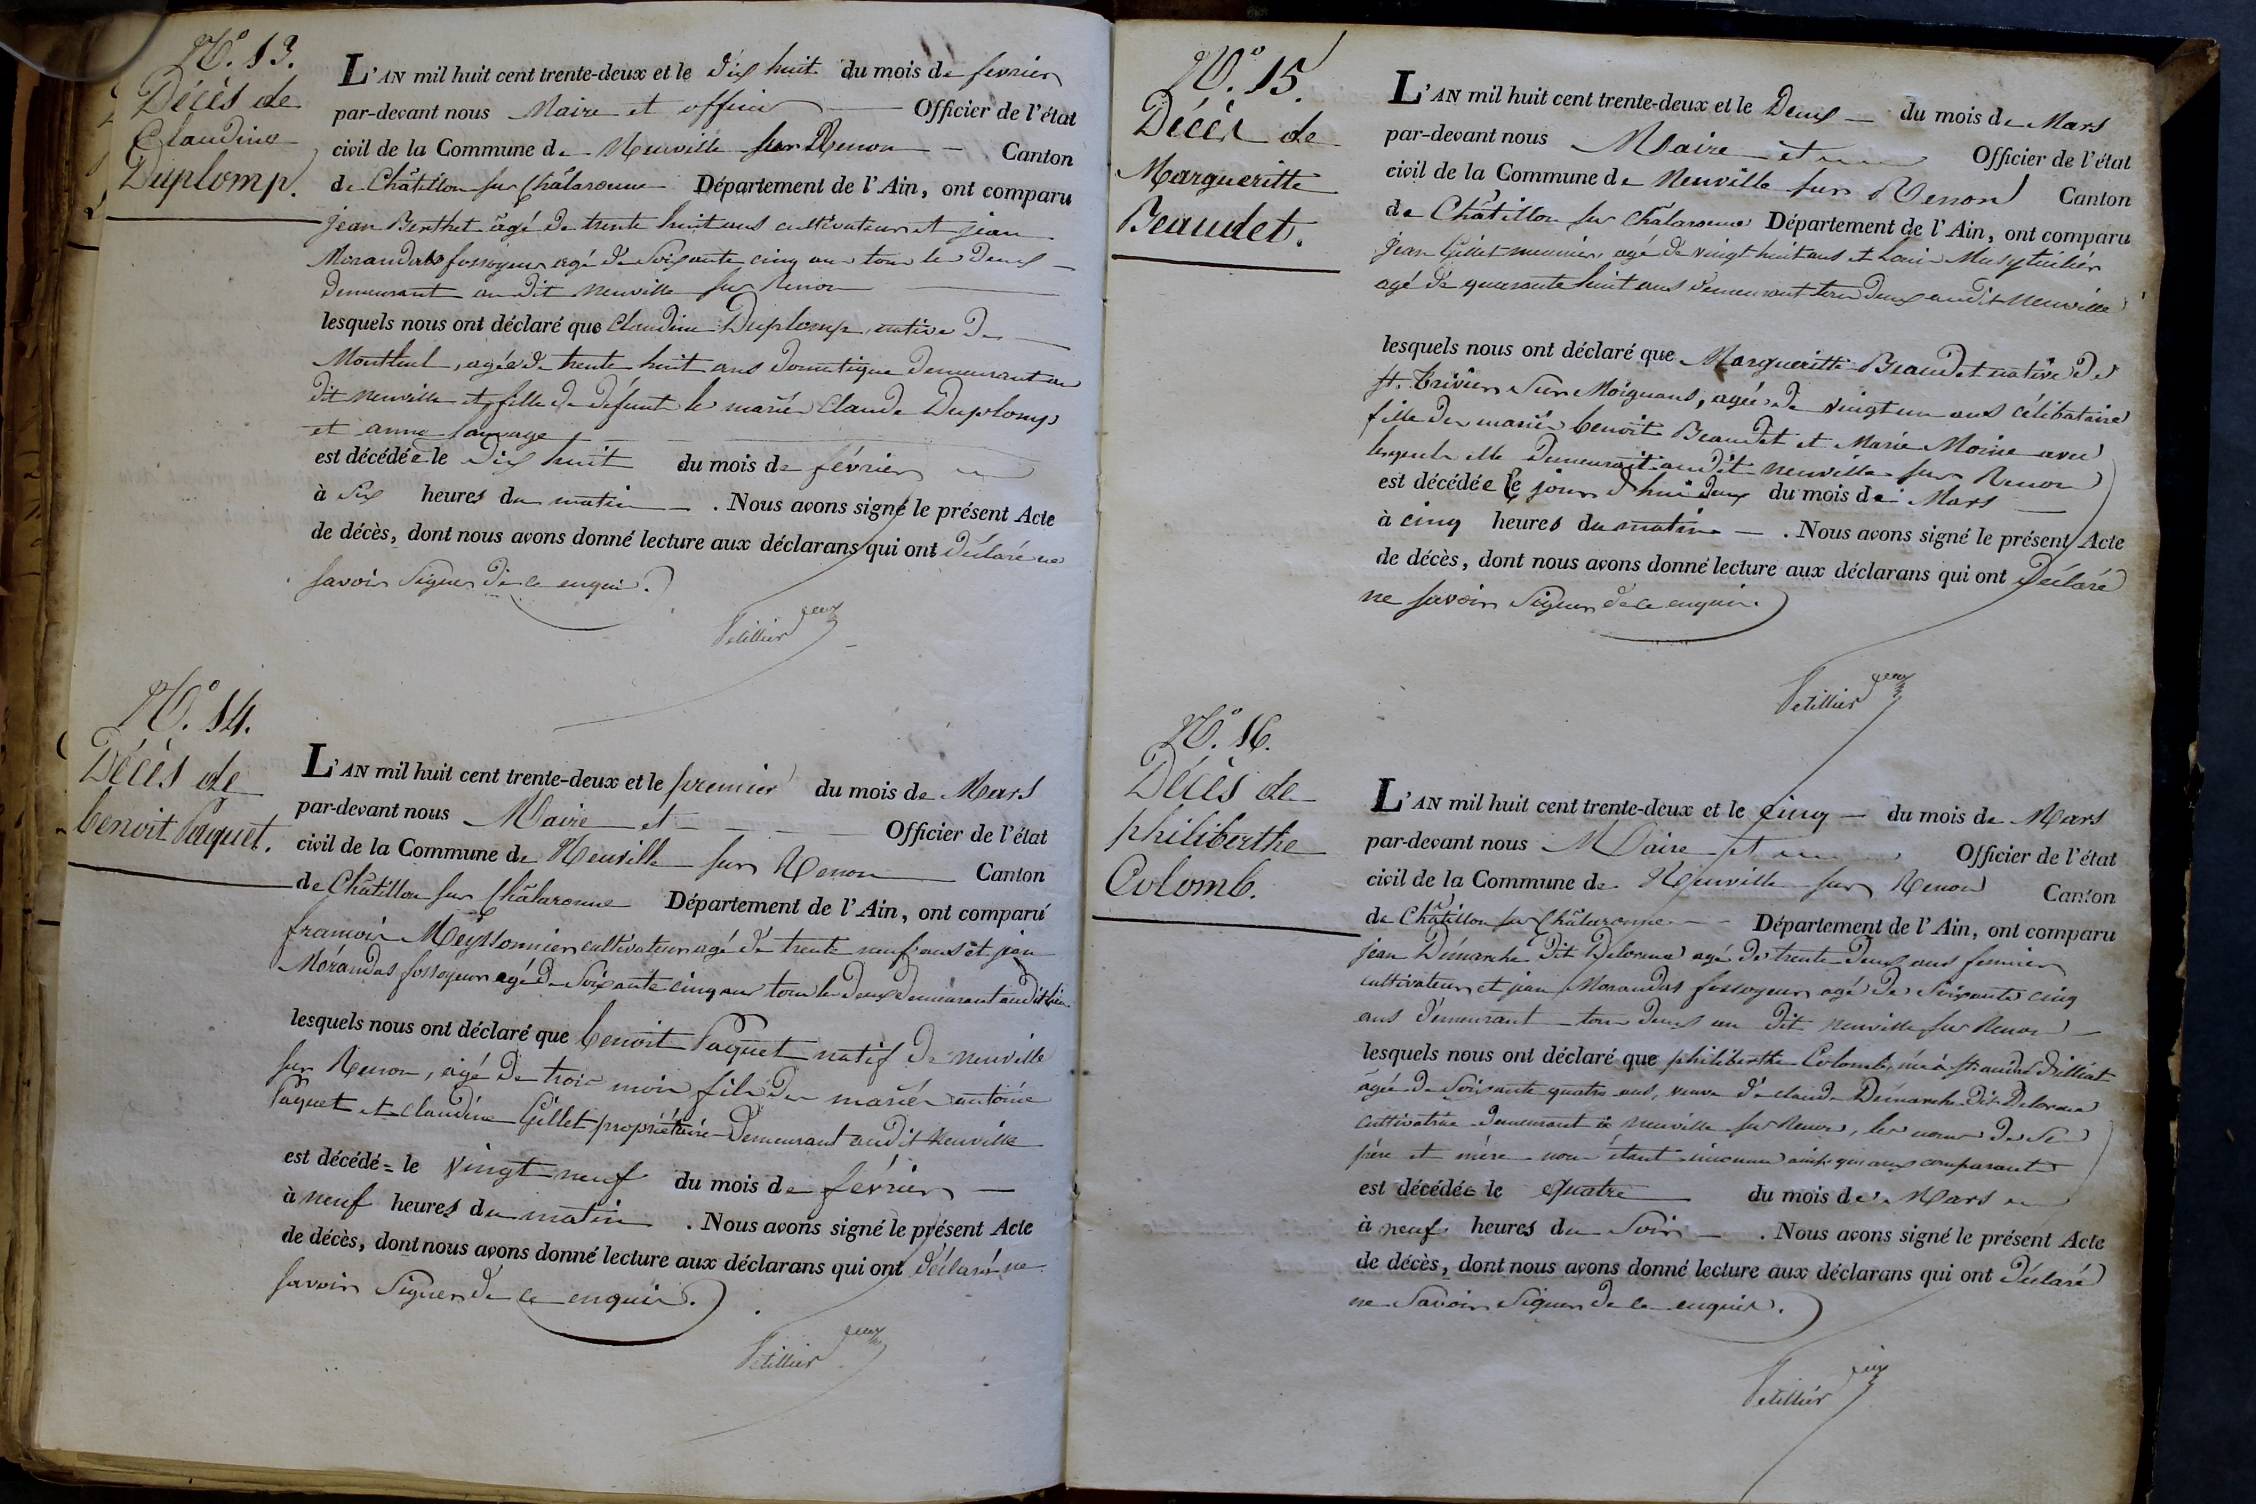 N.º 13.
Décès de
Claudine
Duplomp.
L'AN mil huit cent trente-deux et le dix huit du mois de fevrier
par-devant nous Maire et officier Officier de l'état
civil de la Commune de Neuville sur Renon Canton
de Châtillon sur Châlaronne Département de l'Ain, ont comparu
jean Berthet âgé de trente huit ans cultivateur et jean
Morandas fossoyeur agé de soixante cinq ans tous les deux
demeurant au dit neuville sur Renon
lesquels nous ont déclaré que Claudine Duplomp, native de
Montluel, agée de trente huit ans domestique demeurant au
dit neuville et fille de défunt le mariés Claude Duplomp
et anne sauvage
est décédée le dix huit du mois de février
à six heures du matin . Nous avons signé le présent Acte
de décès, dont nous avons donné lecture aux déclarans qui ont déclaré ne
savoir signer de ce enquis.
Petillier
N.º 14.
Décès de
benoit Paquet.
L'AN mil huit cent trente-deux et le premier du mois de Mars
par-devant nous Maire et Officier de l'état
civil de la Commune de Neuville sur Renon Canton
de Châtillon sur Châlaronne Département de l'Ain, ont comparu
francois Meyssonnier cultivateur agé de trente neuf ans et jean
Morandas fossoyeur agé de soixante cinq ans tous les deux demeurant audit lieu
lesquels nous ont déclaré que benoit Paquet natif de neuville
sur Renon, agé de trois mois fils des mariés antoine
Paquet et claudine Gillet propriétaire demeurant audit neuville
est décédé le vingt neuf du mois de février
à neuf heures du matin . Nous avons signé le présent Acte
de décès, dont nous avons donné lecture aux déclarans qui ont déclaré ne
savoir signer de ce enquis.
Petillier
N.º 15.
Décès de
Margueritte
Beaudet.
L'AN mil huit cent trente-deux et le Deux du mois de Mars
par-devant nous Maire et Officier de l'état
civil de la Commune de Neuville sur Renon Canton
de Châtillon sur Châlaronne Département de l'Ain, ont comparu
jean Gillet meunier, agé de vingt huit ans et Louis Musy tuilier
agé de quarante huit ans demeurant tous deux audit neuville
lesquels nous ont déclaré que Margueritte Beaudet native de
St. Trivier sur Moignans, agée de vingt un ans célibataire
fille des mariés benoit Beaudet et Marie Moine avec
lesquels elle demeurait audit neuville sur Renon
est décédée le jour d'hui deux du mois de Mars
à cinq heures du matin . Nous avons signé le présent Acte
de décès, dont nous avons donné lecture aux déclarans qui ont déclaré
ne savoir signer de ce enquis.
Petillier
N.º 16.
Décès de
philiberthe
Colomb.
L'AN mil huit cent trente-deux et le cinq du mois de Mars
par-devant nous Maire et Officier de l'état
civil de la Commune de Neuville sur Renon Canton
de Châtillon sur Châlaronne Département de l'Ain, ont comparu
jean Démarche dit Delorme agé de trente deux ans fermier
cultivateur et jean Morandas fossoyeur agé de soixante cinq
ans demeurant tous deux au dit neuville sur Renon
lesquels nous ont déclaré que philiberthe Colomb, née à St andré
âgée de soixante quatre ans, veuve de claude Démarche dit Delorme
cultivatrice demeurant à neuville sur Renon, les noms de se
père et mère nous étant inconnu ainsi qu'aux comparants
est décédée le quatre du mois de Mars
à neuf heures du soir . Nous avons signé le présent Acte
de décès, dont nous avons donné lecture aux déclarans qui ont déclaré
ne savoir signer de ce enquis.
Petillier